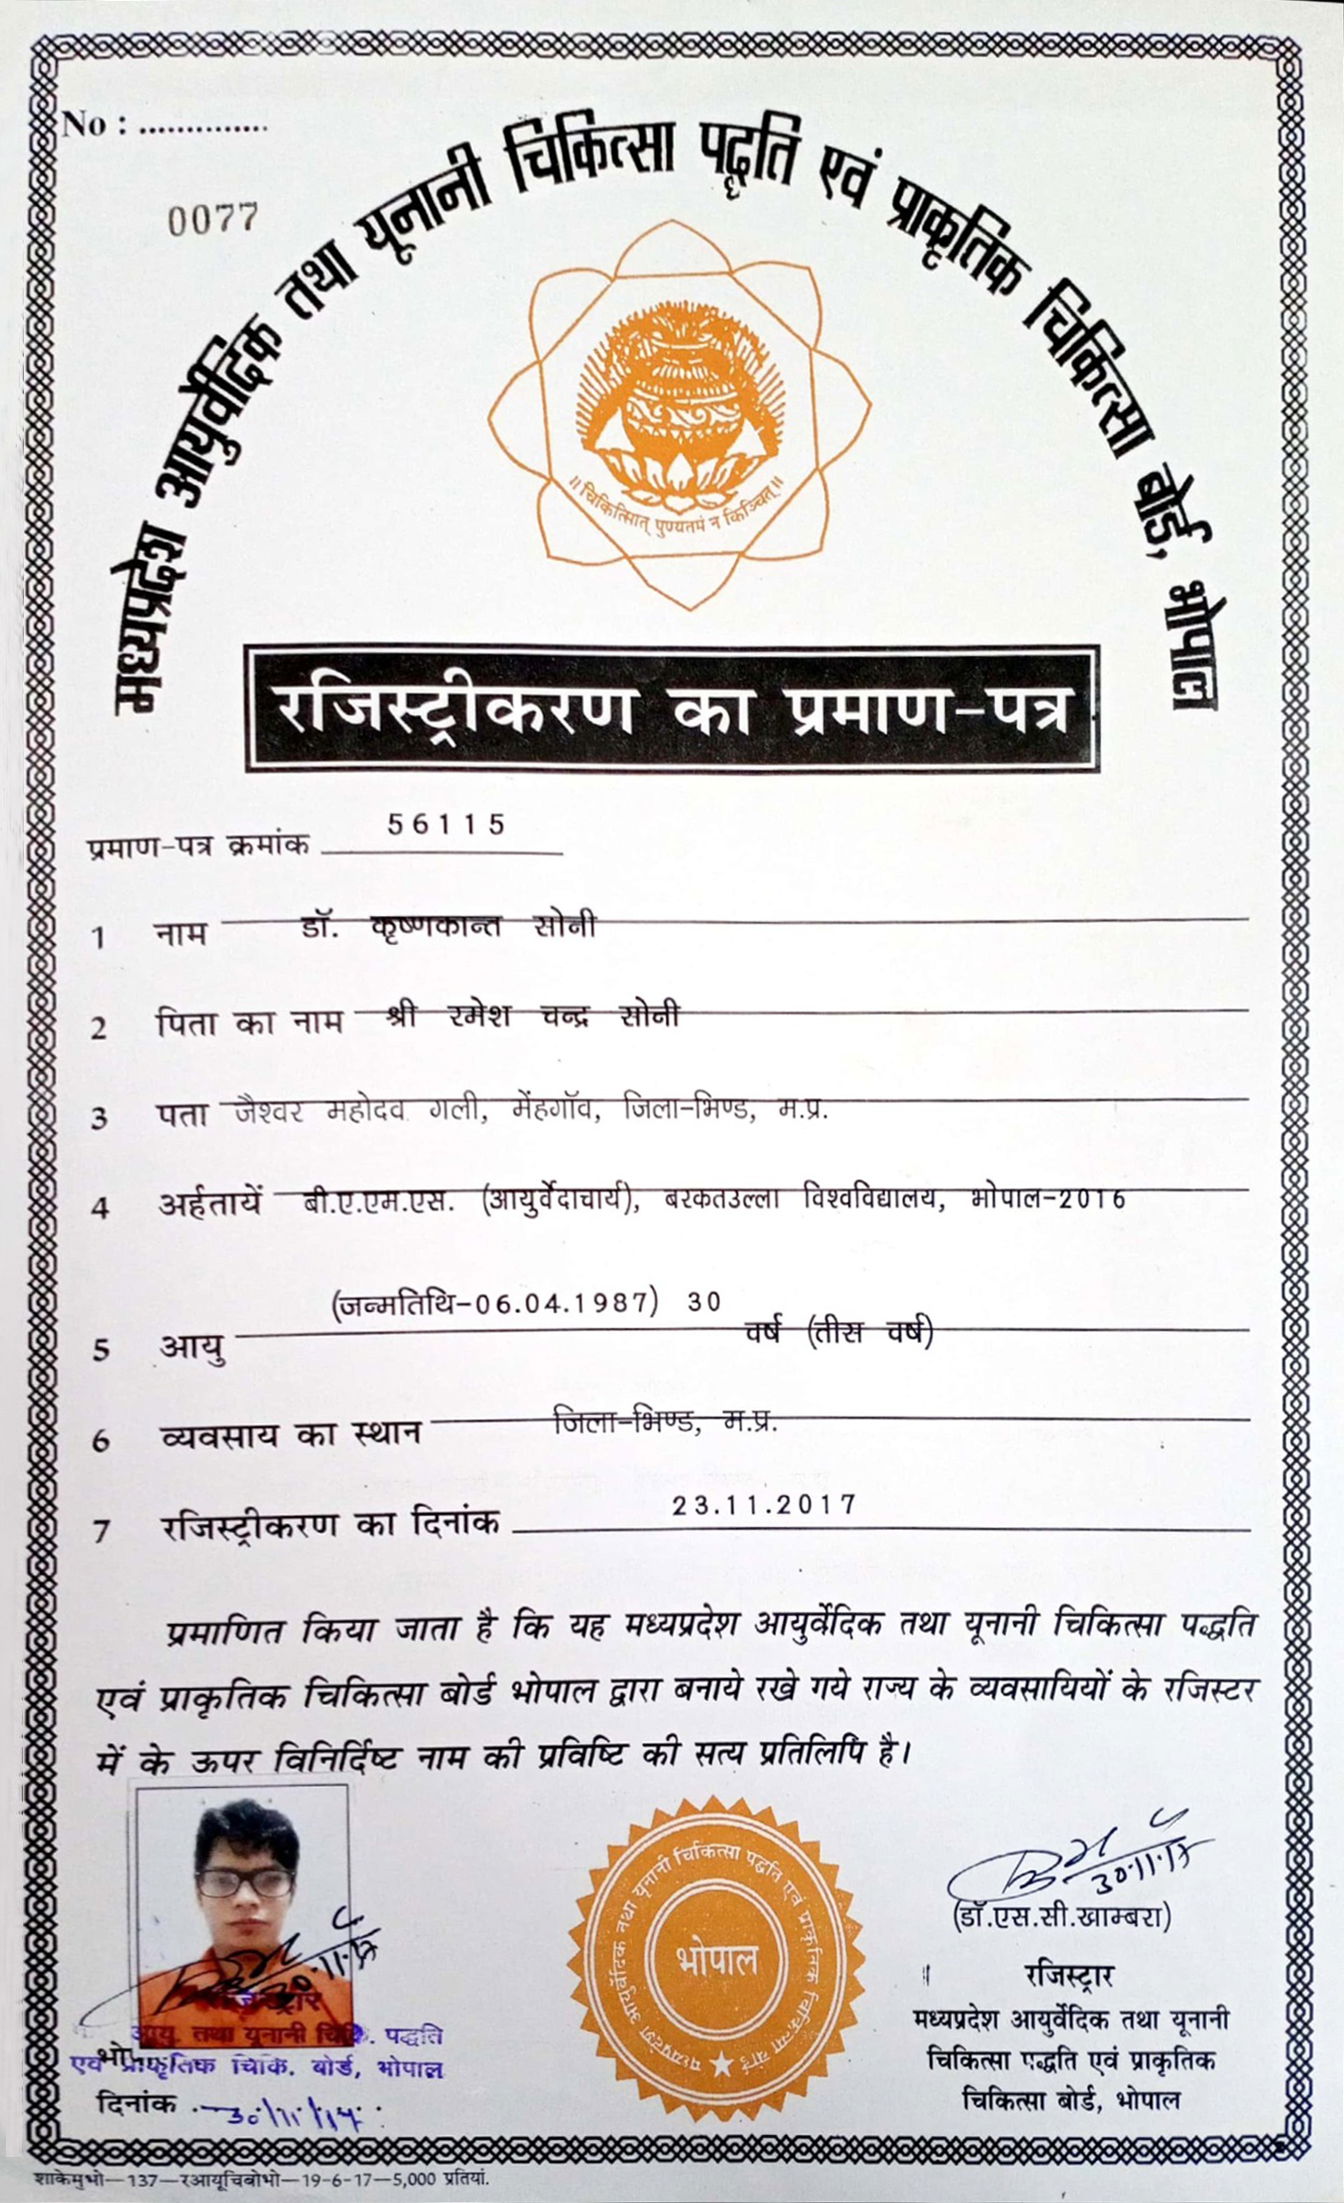 No : ..............
0077
मध्यप्रदेश आयुर्वेदिक तथा यूनानी चिकित्सा पद्धति एवं प्राकृतिक चिकित्सा बोर्ड, भोपाल
॥ चिकित्सितात् पुण्यतमं न किञ्चित् ॥
रजिस्ट्रीकरण का प्रमाण-पत्र
प्रमाण-पत्र क्रमांक 56115
1 नाम डॉ. कृष्णकान्त सोनी
2 पिता का नाम श्री रमेश चन्द्र सोनी
3 पता जैश्वर महोदव गली, मेंहगॉव, जिला-भिण्ड, म.प्र.
4 अर्हतायें बी.ए.एम.एस. (आयुर्वेदाचार्य), बरकतउल्ला विश्वविद्यालय, भोपाल-2016
5 आयु (जन्मतिथि-06.04.1987) 30 वर्ष (तीस वर्ष)
6 व्यवसाय का स्थान जिला-भिण्ड, म.प्र.
7 रजिस्ट्रीकरण का दिनांक 23.11.2017
प्रमाणित किया जाता है कि यह मध्यप्रदेश आयुर्वेदिक तथा यूनानी चिकित्सा पद्धति
एवं प्राकृतिक चिकित्सा बोर्ड भोपाल द्वारा बनाये रखे गये राज्य के व्यवसायियों के रजिस्टर
में के ऊपर विनिर्दिष्ट नाम की प्रविष्टि की सत्य प्रतिलिपि है।
30.11.17
(डॉ.एस.सी.खाम्बरा)
रजिस्ट्रार
मध्यप्रदेश आयुर्वेदिक तथा यूनानी
चिकित्सा पद्धति एवं प्राकृतिक
चिकित्सा बोर्ड, भोपाल
मध्यप्रदेश आयुर्वेदिक तथा यूनानी चिकित्सा पद्धति एवं प्राकृतिक चिकित्सा बोर्ड
भोपाल
30.11.17
रजिस्ट्रार
आयु. तथा यूनानी चिकि. पद्धति
एवं प्राकृतिक चिकि. बोर्ड, भोपाल
दिनांक 30/11/17
शाकेमुभो—137—रआयूचिबोभो—19-6-17—5,000 प्रतियां.